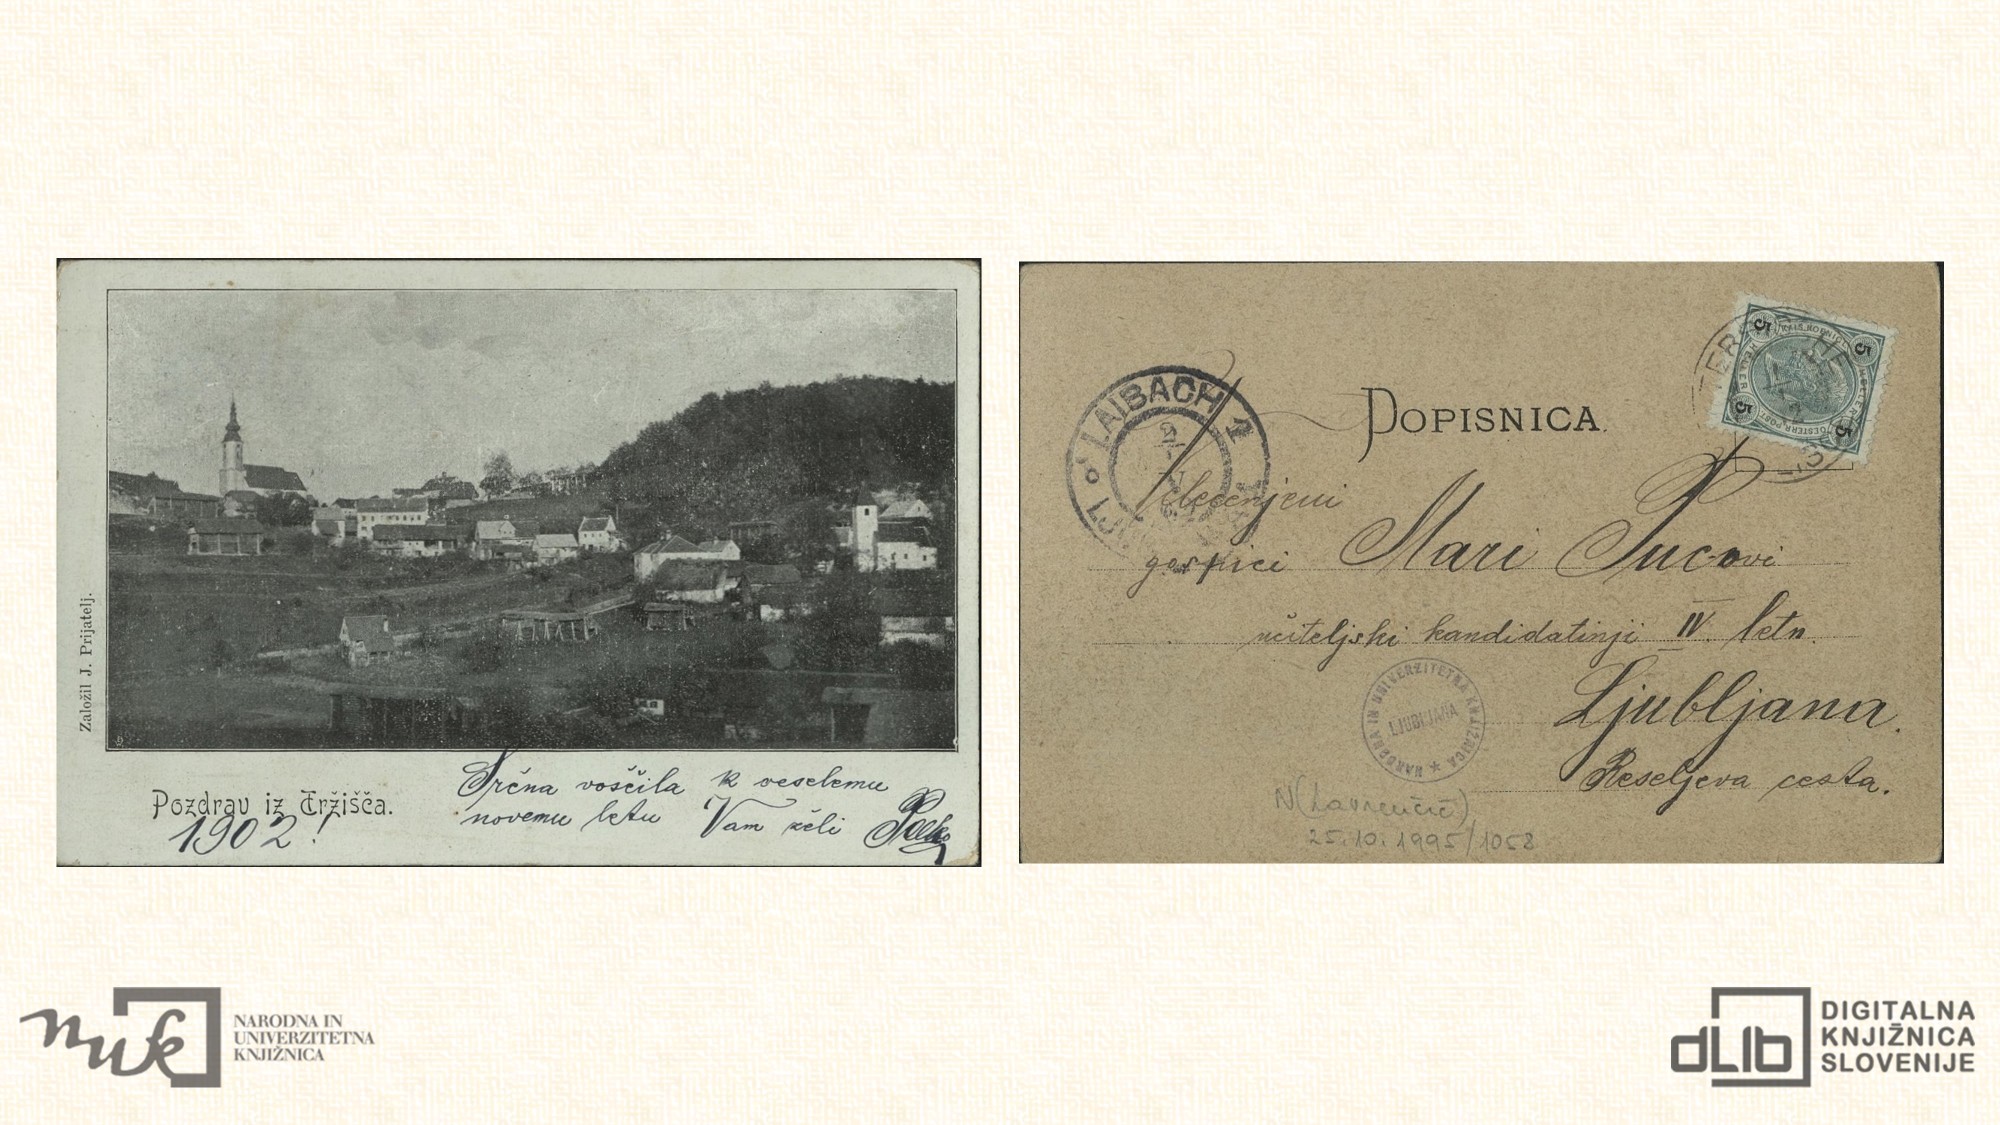 Založil J. Prijatelj.
Pozdrav iz Tržišča.
1902!
Srčna voščila k veselemu
novemu letu Vam želi
DOPISNICA.
LAIBACH 1
5 5 5 5
Velecenjeni
gospici Mari Pucovi
učiteljski kandidatinji IV. letn.
Ljubljana.
Reseljeva cesta.
NARODNA IN UNIVERZITETNA KNJIŽNICA
LJUBLJANA
N(Lavrenčič)
25.10.1995/1058
nuk
NARODNA IN
UNIVERZITETNA
KNJIŽNICA
dLib
DIGITALNA
KNJIŽNICA
SLOVENIJE